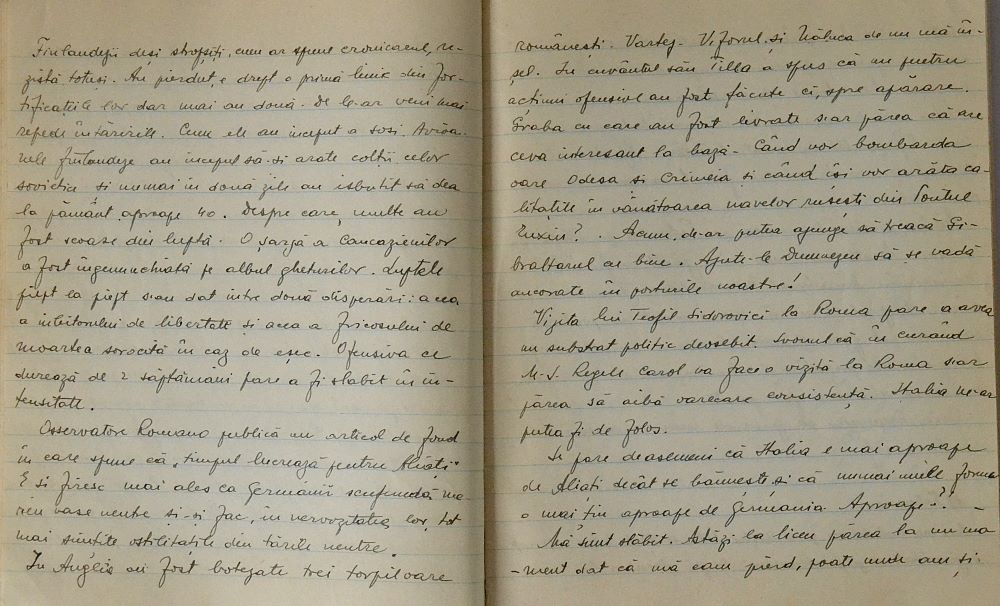 Finlandejii deși stropșiți, cum ar spune cronicarul, re-
zistă totuși. Au pierdut, e drept o primă linie din for-
tificațiile lor dar mai au două. De le-ar veni mai
repede întăririle. Cum ele au început a sosi. Avioa-
nele finlandeze au început să-și arate colții celor
sovietice și numai în două zile au isbutit să dea
la pământ aproape 40. Despre care, multe au
fost scoase din luptă. O șarjă a Caucazienilor
a fost îngenunchiată pe albul ghețurilor. Luptele
piept la piept s-au dat între două disperări: acea
a iubitorului de libertate și acea a fricosului de
moartea sorocită în caz de eșec. Ofensiva ce
durează de 2 săptămâni pare a fi slabit în in-
tensitate.
Osservatore Romano publică un articol de fond
în care spune că „timpul lucrează pentru Aliați"
E și firesc mai ales ca Germanii scufundă me-
reu vase neutre și-și fac, în nervozitatea lor, tot
mai simțite ostilitățile din țările neutre.
În Anglia au fost botezate trei torpiloare
românești. Vartej - Viforul și Năluca de nu mă în-
șel. În cuvântul său Tilea a spus că nu pentru
acțiuni ofensive au fost făcute ci, spre apărare.
Graba cu care au fost livrate s-ar părea că are
ceva interesant la bază. Când vor bombarda
oare Odesa și Crimeia și când își vor arăta ca-
litățile în vânătoarea navelor rusești din Pontul
Euxin? Acum, de-ar putea ajunge să treacă Gi-
braltarul cu bine. Ajute-le Dumnezeu să se vadă
ancorate în porturile noastre!
Vizita lui Teofil Sidorovici la Roma pare a avea
un substrat politic deosebit. Svonul că în curând
M.S. Regele Carol va face o vizită la Roma s-ar
părea să aibă oarecare consistență. Italia ne-ar
putea fi de folos.
Se pare deasemeni că Italia e mai aproape
de Aliați decât se bănuește și că numai unele forme
o mai țin aproape de Germania. Aproape?
Mă simt slăbit. Astăzi la liceu părea la un mo-
-ment dat că mă cam pierd, poate unde am și